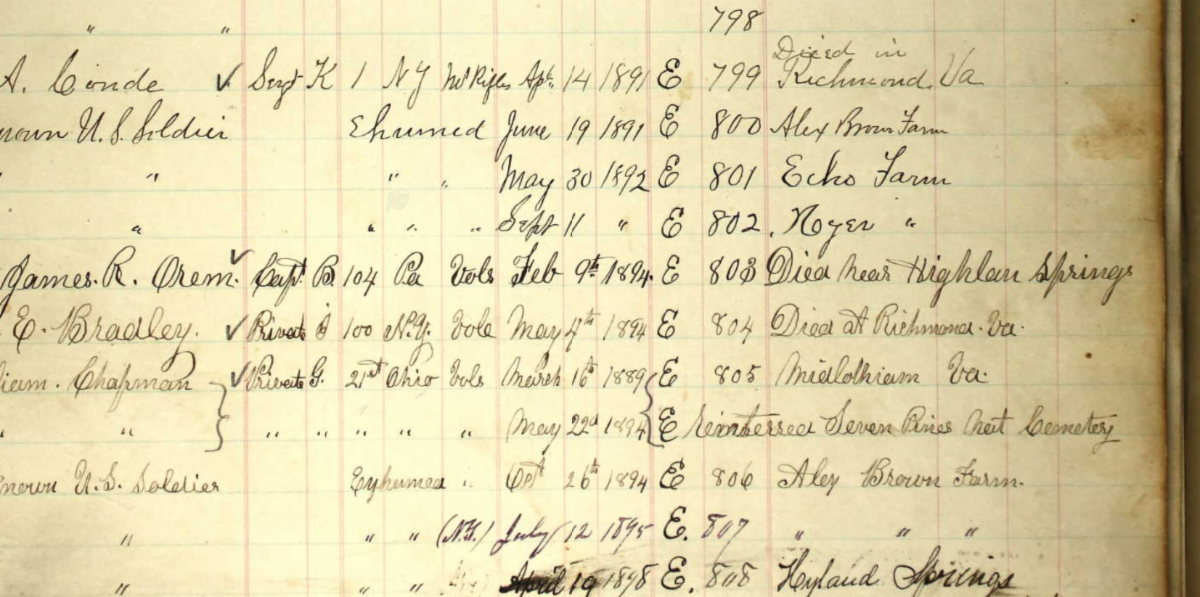 " " 798
A. Conde ✓ Sergt K 1 NY Mt Rifles Apl. 14 1891 E 799 Died in Richmond, Va
nown U.S. Soldier Ehumed June 19 1891 E 800 Alex Brown Farm
" " " " May 30 1892 E 801 Echo Farm
" " " " Sept 11 " E 802. Noyer "
James. R. Orem. ✓ Capt. B. 104 Pa Vols Feb 9th 1894. E 803 Died near Highlan Springs
E. Bradley. ✓ Private 100 N.Y. Vols May 4th 1894 E 804 Died at Richmond. Va.
iam. Chapman } ✓ Private G. 21st Ohio Vols March 16th 1889 { E 805 Midlothiam Va.
" " " " " " " May 22d 1894 E reinterred Seven Pines Nat Cemetery
nown U.S. Soldier Exhumed " Oct 26th 1894 E 806 Alex Brown Farm.
" " " (N.Y.) July 12 1895 E. 807 " " "
" " " April 19 1898 E. 808 Hyland Springs